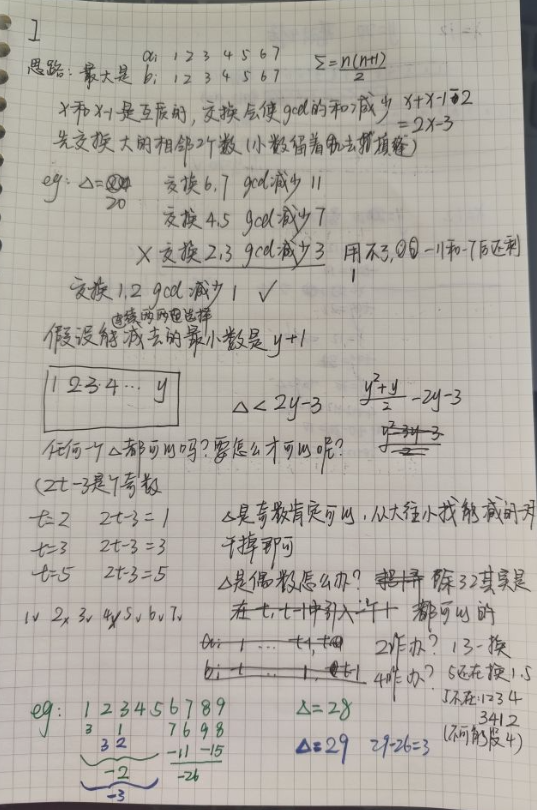 1
a: 1 2 3 4 5 6 7
思路: 最大是 b: 1 2 3 4 5 6 7 Σ=n(n+1)/2
x和x-1是互质的, 交换会使gcd的和减少 x+x-1-2
=2x-3
先交换大的相邻2个数(小数留着
eg: Δ=
20
交换6,7 gcd减少11
交换4,5 gcd减少7
× 交换2,3 gcd减少3 用不3, -11和-7后还剩
1
交换1,2 gcd减少1 ✓
连续的两两选择
假设能减去的最小数是y+1
1 2 3 4 … y
Δ<2y-3 (y²+y)/2 -2y-3
任何一个Δ都可以吗?要怎么才可以呢?
(2t-3是个奇数
t=2 2t-3=1
t=3 2t-3=3
t=5 2t-3=5
Δ是奇数肯定可以, 从大往小找能减的一对
干掉即可
Δ是偶数怎么办? 除32其实是
都可以的
1✓ 2× 3✓ 4× 5✓ 6✓ 7✓
a: 1 … t-1, t
b: t … 1, t-1
2咋办? 13一换
4咋办? 5还在换1.5
5不在1234
3412
(不可能没4)
eg: 1 2 3 4 5 6 7 8 9 Δ=28
3 1 7 6 9 8
3 2 -11 -15
-2 -26
-3
Δ=29 29-26=3